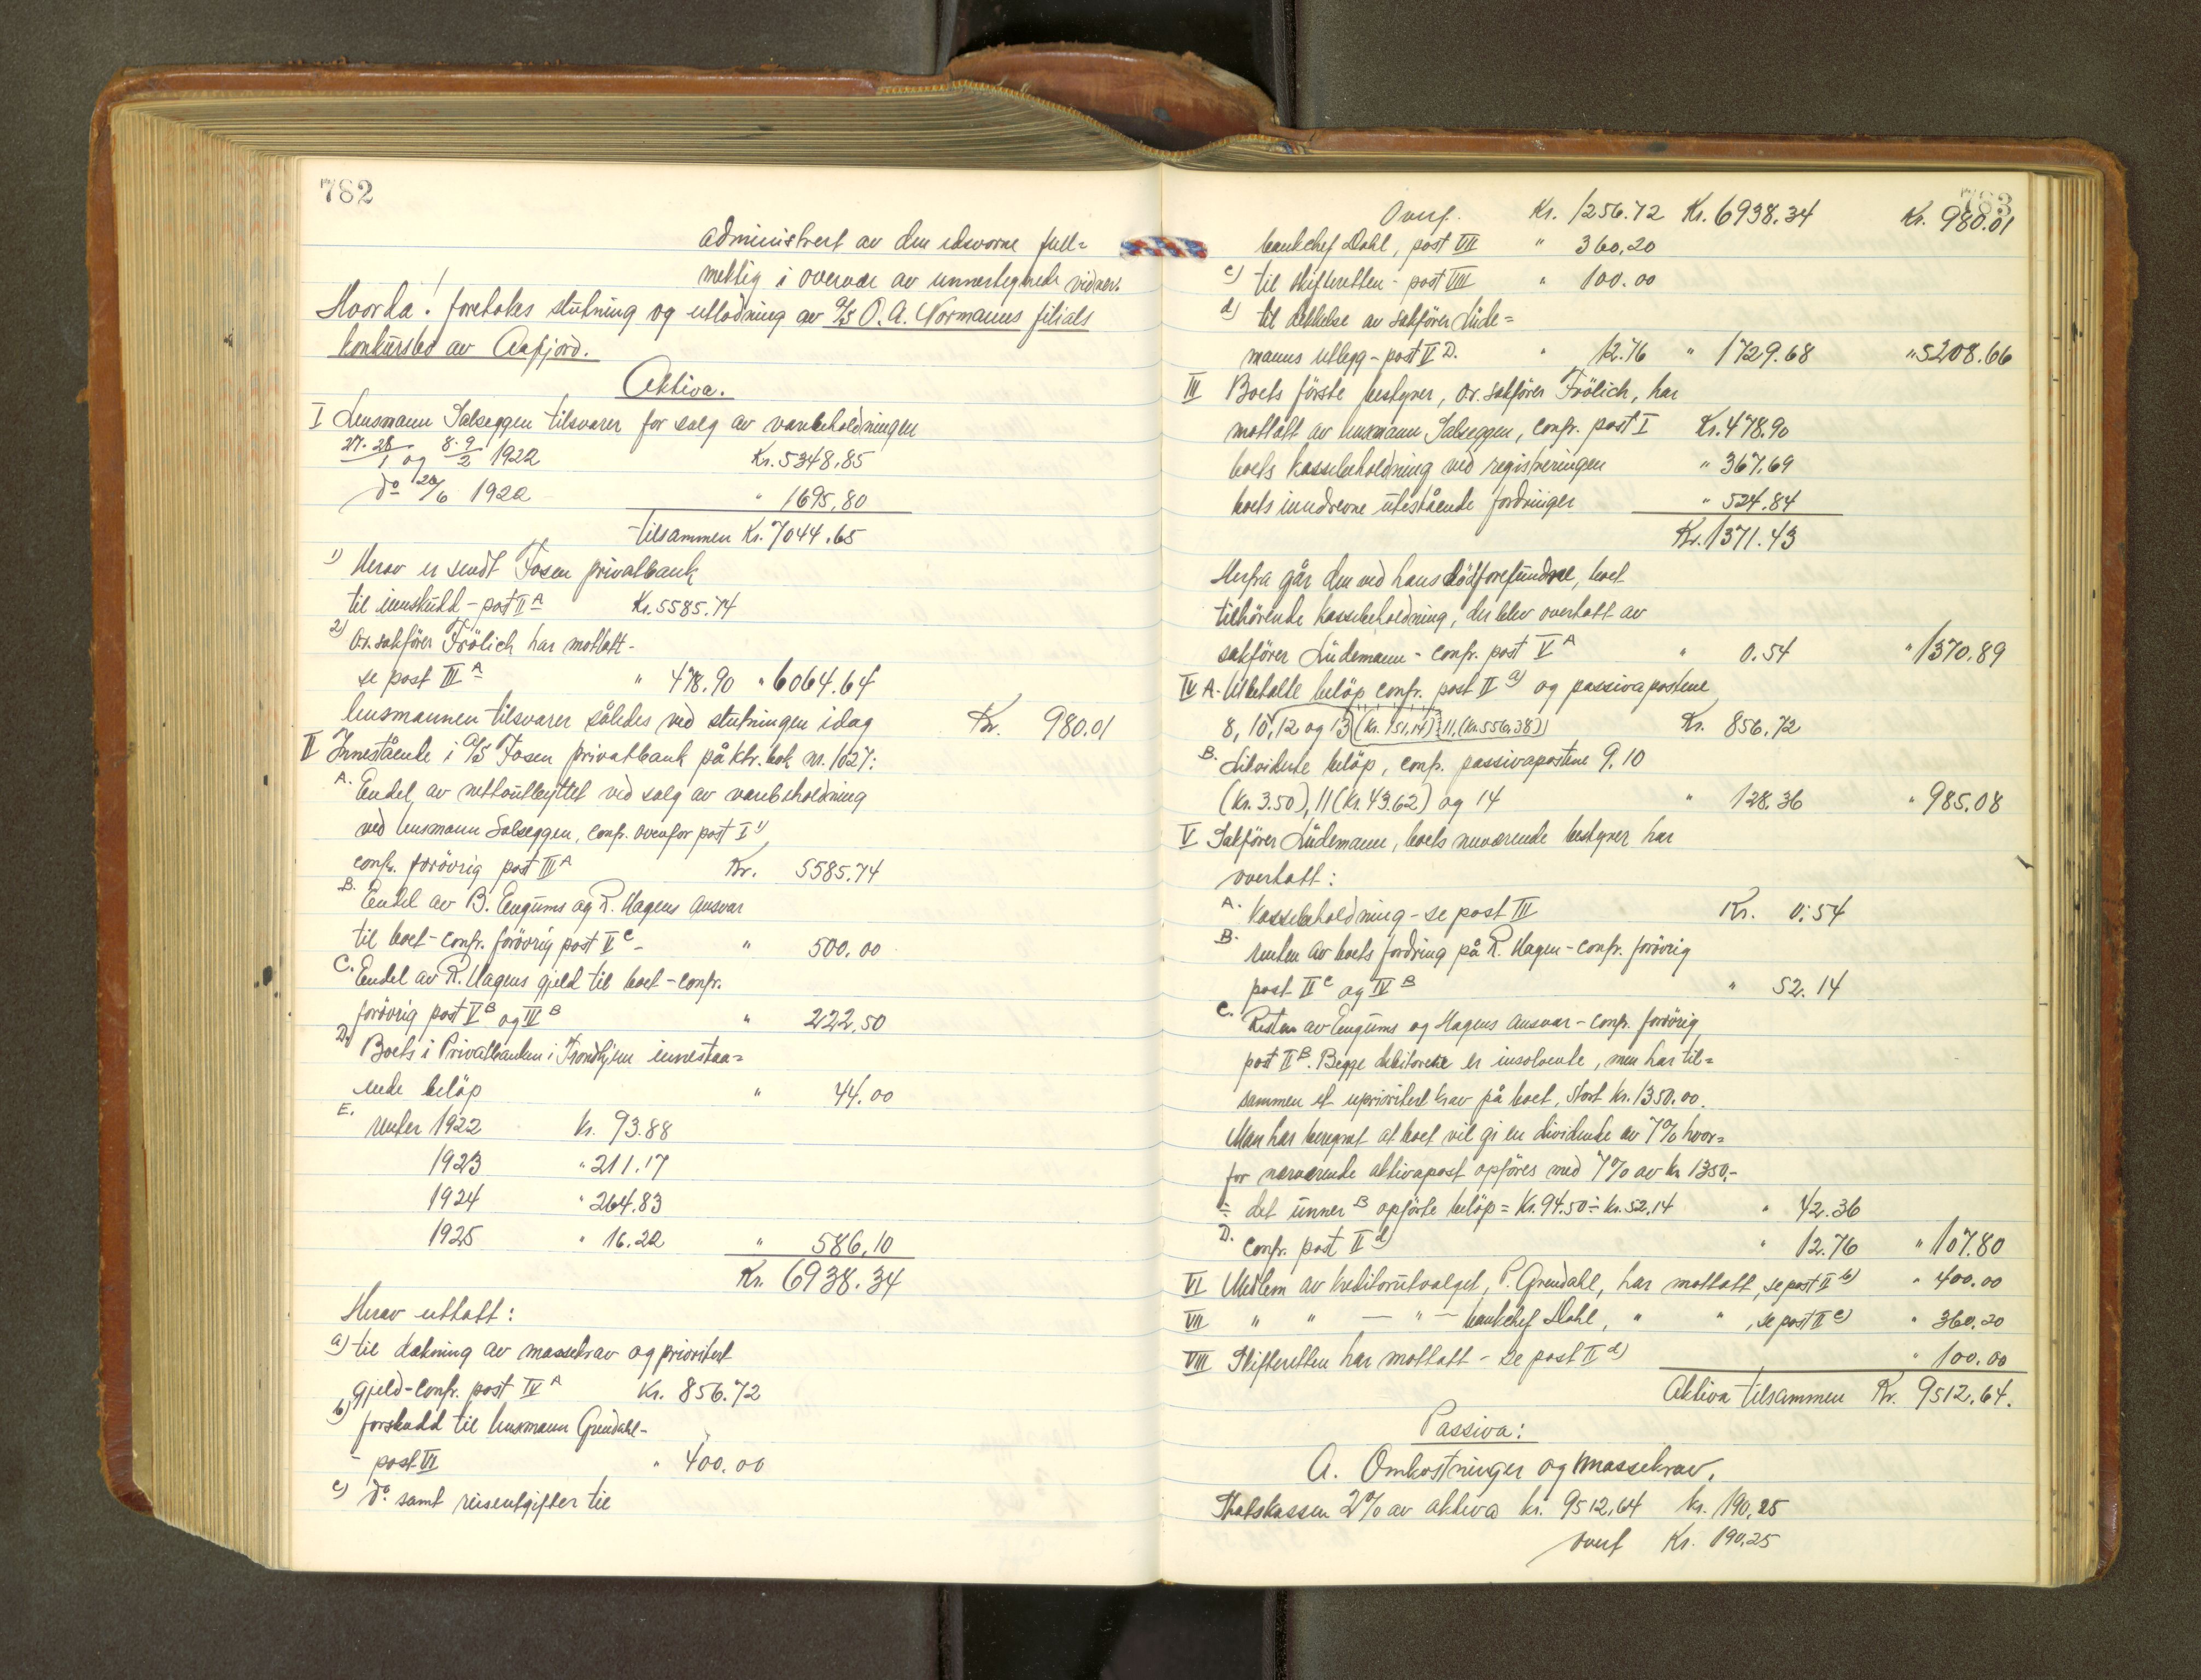 782
administrert av den edsvorne full=
mektig i overvær av unnertegnede vidner.
Hvorda! foretokes slutning og utlodning av A/S O. A. Normanns filials
konkursbo av Aafjord.
Aktiva.
I Lensmann Salseggen tilsvarer for salg av varebeholdningen
27.-28./1 og 8.9/2 1922 Kr. 5348,85
do 20/6 1922 " 1695,80
tilsammen Kr. 7044.65
1) Herav er sendt Fosen privatbank
til innskudd - post II A Kr. 5585.74
2) O.r.sakfører Frölich har mottatt -
se post III A " 478.90 " 6064.64
lensmannen tilsvarer således ved slutningen idag Kr. 980.01
II Innestående i A/S Fosen privatbank på ktr. bok nr. 1027:
A. Endel av nettoutbyttet ved salg av varebeholdning
ved lensmann Salseggen, confr. ovenfor post I 1)
confr. forövrig post III A Kr. 5585.74
B. Endel av B. Engums og R. Hagens ansvar
til boet - confr. forövrig post V C - " 500.00
C. Endel av R. Hagens gjeld til boet - confr.
forövrig post V B og IV B " 222.50
D. Boets i Privatbanken i Trondhjem innestaa=
ende beløp " 44.00
E. renter 1922 kr. 93.88
1923 " 211.17
1924 " 264.83
1925 " 16.22 " 586,10
Kr. 6938.34
Herav uttatt:
a) til dekning av massekrav og prioritert
gjeld - confr. post IV A Kr. 856.72
b) forskudd til lensmann Grendahl -
- post VI " 400.00
c) do. samt reiseutgifter til
783
Overf. Kr. 1256.72 Kr. 6938.34 Kr. 980.01
bankchef Dahl, post VII " 360,20
c) til skifteretten - post VIII " 100.00
d) til dekkelse av sakförer Lüde=
manns utlegg - post V D. " 12.76 " 1729.68 " 5208.66
III Boets förste bestyrer, o.r.sakförer Frölich, har
mottatt av lensmann Salseggen, confr. post I Kr. 478.90
boets kassebeholdning ved registreringen " 367.69
boets inndrevne utestående fordringer " 524.84
Kr. 1371.43
Herfra går den ved hans död forefundne, boet
tilhörende kassebeholdning, der blev overtatt av
sakförer Lüdemann - confr. post V A " 0.54 " 1370.89
IV A. Utbetalte belöp confr. post II a) og passivapostene
8, 10, 12 og 13 (Kr. 151,14) 11, (Kr. 556,38)) Kr. 856,72
B. Likviderte belöp, confr. passivapostene 9, 10
(Kr. 3.50), 11 (Kr. 43.62) og 14 " 128.36 " 985.08
V Sakförer Lüdemann, boets nuværende bestyrer har
overtatt:
A. Kassebeholdning - se post III Kr. 0.54
B. renten av boets fordring på R. Hagen - confr. forövrig
post II C og IV B " 52.14
C. Resten av Engums og Hagens ansvar - confr. forövrig
post II B. Begge debitorene er insolvente, men har til=
sammen et uprioritert krav på boet, stort kr. 1350.00.
Man har beregnet at boet vil gi en dividende av 7% hvor=
for nærværende aktivapost opföres med 7% av kr 1350,-
÷ det unner B opförte belöp = Kr. 94.50 ÷ kr. 52.14 " 42.36
D. Confr. post II d) " 12.76 " 107.80
VI Medlem av kreditorutvalget, P. Grendahl, har mottatt, se post II b) " 400.00
VII " " — " — bankchef Dahl, " " , se post II c) " 360.20
VIII Skifteretten har mottatt - se post II d) " 100.00
Aktiva tilsammen Kr. 9512.64.
Passiva:
A. Omkostninger og massekrav.
Statskassen 2% av aktiva kr. 9512,64 kr. 190,25
overf Kr. 190.25